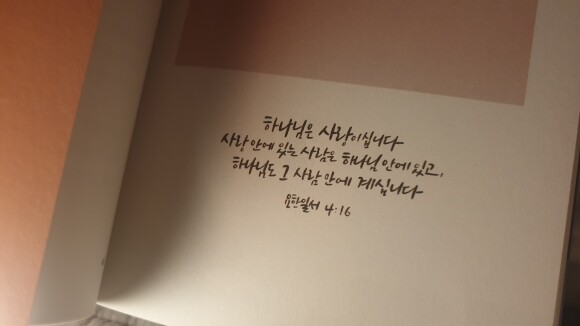 하나님은 사랑이십니다
사랑 안에 있는 사람은 하나님 안에 있고,
하나님도 그 사람 안에 계십니다
요한일서 4:16